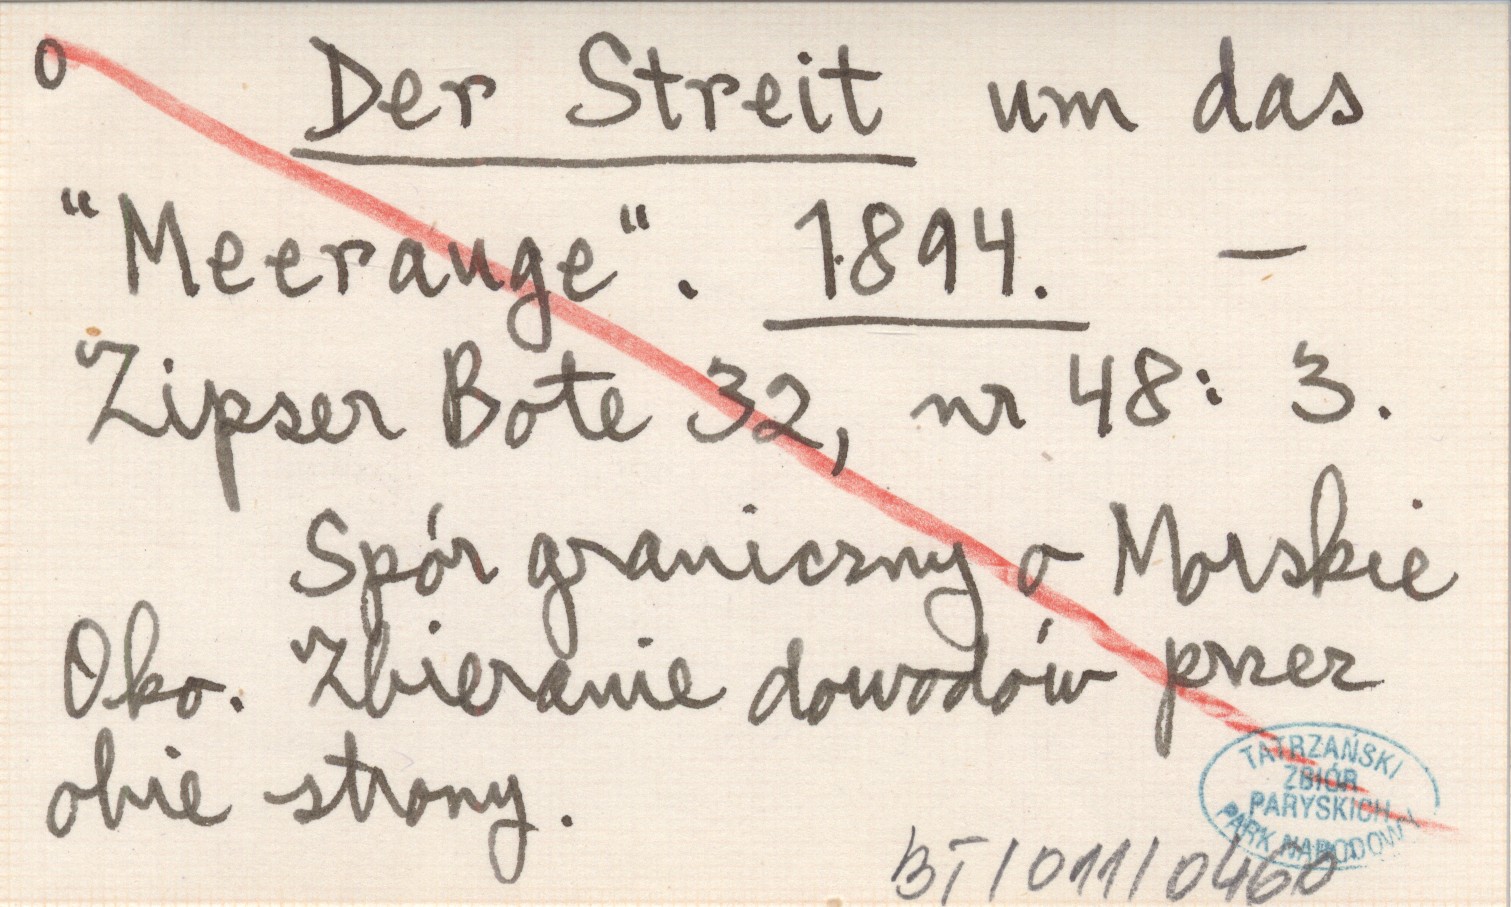 o Der Streit um das
"Meerauge". 1894. —
Zipser Bote 32, nr 48: 3.
Spór graniczny o Morskie
Oko. Zbieranie dowodów przez
obie strony.
TATRZAŃSKI
ZBIÓR
PARYSKICH
PARK NARODOWY
BT/011/0460